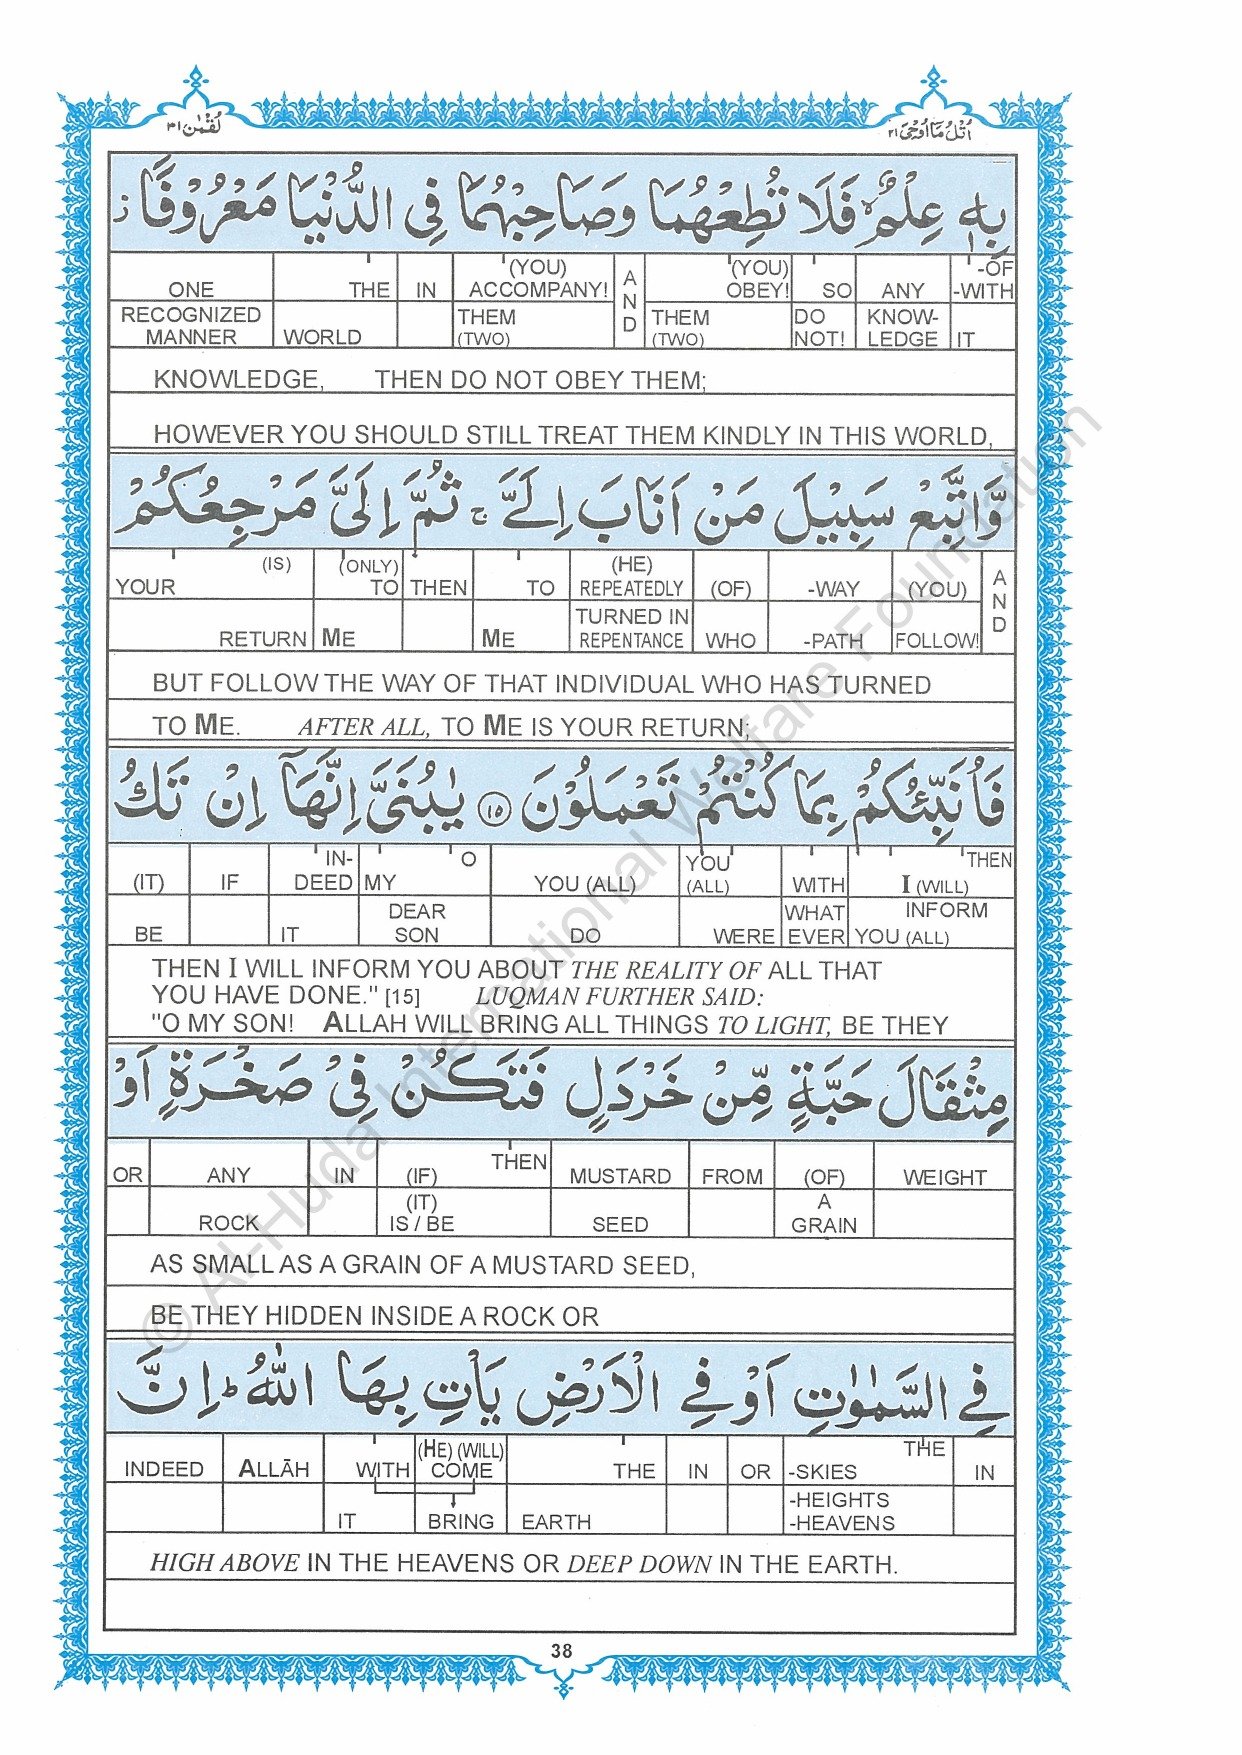 لُقْمٰن ٣١
اُتْلُ مَآ اُوْحِیَ ٢١
بِهٖ عِلْمٌ ۙ فَلَا تُطِعْهُمَا وَصَاحِبْهُمَا فِی الدُّنْیَا مَعْرُوْفًا ز
ONE THE IN (YOU) ACCOMPANY! AND (YOU) OBEY! SO ANY -OF -WITH
RECOGNIZED MANNER WORLD THEM (TWO) THEM (TWO) DO NOT! KNOW-LEDGE IT
KNOWLEDGE, THEN DO NOT OBEY THEM;
HOWEVER YOU SHOULD STILL TREAT THEM KINDLY IN THIS WORLD,
وَّاتَّبِعْ سَبِیْلَ مَنْ اَنَابَ اِلَیَّ ج ثُمَّ اِلَیَّ مَرْجِعُكُمْ
YOUR (IS) (ONLY) TO THEN TO (HE) REPEATEDLY (OF) -WAY (YOU) AND
RETURN ME ME TURNED IN REPENTANCE WHO -PATH FOLLOW!
BUT FOLLOW THE WAY OF THAT INDIVIDUAL WHO HAS TURNED
TO ME. AFTER ALL, TO ME IS YOUR RETURN;
فَاُنَبِّئُكُمْ بِمَا كُنْتُمْ تَعْمَلُوْنَ ١٥ یٰبُنَیَّ اِنَّهَآ اِنْ تَكُ
(IT) IF IN-DEED MY O YOU (ALL) YOU (ALL) WITH THEN I (WILL)
BE IT DEAR SON DO WERE WHAT EVER INFORM YOU (ALL)
THEN I WILL INFORM YOU ABOUT THE REALITY OF ALL THAT
YOU HAVE DONE." [15] LUQMAN FURTHER SAID:
"O MY SON! ALLAH WILL BRING ALL THINGS TO LIGHT, BE THEY
مِثْقَالَ حَبَّةٍ مِّنْ خَرْدَلٍ فَتَكُنْ فِیْ صَخْرَةٍ اَوْ
OR ANY IN (IF) THEN MUSTARD FROM (OF) WEIGHT
ROCK (IT) IS / BE SEED A GRAIN
AS SMALL AS A GRAIN OF A MUSTARD SEED,
BE THEY HIDDEN INSIDE A ROCK OR
فِی السَّمٰوٰتِ اَوْ فِی الْاَرْضِ یَاْتِ بِهَا اللّٰهُ ط اِنَّ
INDEED ALLĀH WITH (HE) (WILL) COME THE IN OR THE -SKIES IN
IT BRING EARTH -HEIGHTS -HEAVENS
HIGH ABOVE IN THE HEAVENS OR DEEP DOWN IN THE EARTH.
38
© Al-Huda International Welfare Foundation